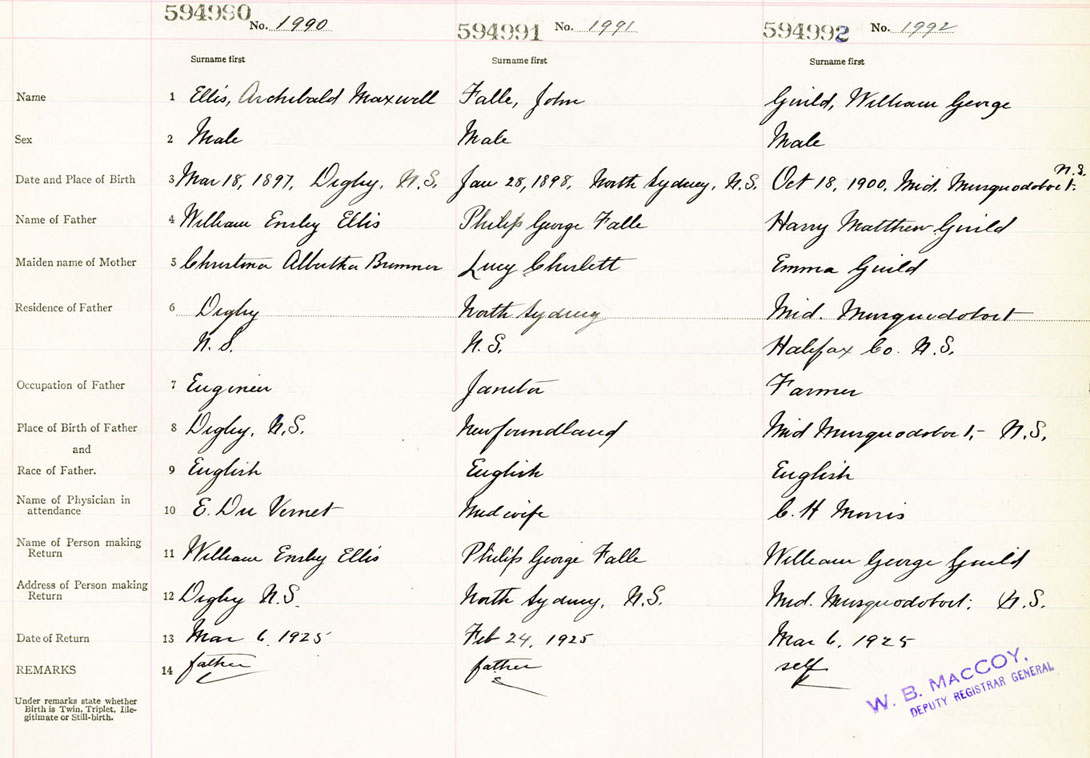 594990 No. 1990 594991 No. 1991 594992 No. 1992
Surname first Surname first Surname first
Name 1 Ellis, Archibald Maxwell Falle, John Guild, William George
Sex 2 Male Male Male
N.S.
Date and Place of Birth 3 Mar 18, 1897, Digby, N.S. Jan 28, 1898, North Sydney, N.S. Oct 18, 1900, Mid. Musquodoboit.
Name of Father 4 William Ensley Ellis Philip George Falle Harry Matthew Guild
Maiden name of Mother 5 Christina Albertha Lucy Emma Guild
Residence of Father 6 Digby North Sydney Mid. Musquodoboit
N.S. N.S. Halifax Co. N.S.
Occupation of Father 7 Engineer Janitor Farmer
Place of Birth of Father 8 Digby, N.S. Newfoundland Mid Musquodoboit, - N.S.
and
Race of Father. 9 English English English
Name of Physician in
attendance 10 E. Du Vernet Midwife C. H Morris
Name of Person making
Return 11 William Ensley Ellis Philip George Falle William George Guild
Address of Person making
Return 12 Digby N.S. North Sydney, N.S. Mid. Musquodoboit; N.S.
Date of Return 13 Mar 6, 1925 Feb 24, 1925 Mar 6, 1925
REMARKS 14 father father self
Under remarks state whether
Birth is Twin, Triplet, Ille-
gitimate or Still-birth.
W. B. MACCOY,
DEPUTY REGISTRAR GENERAL